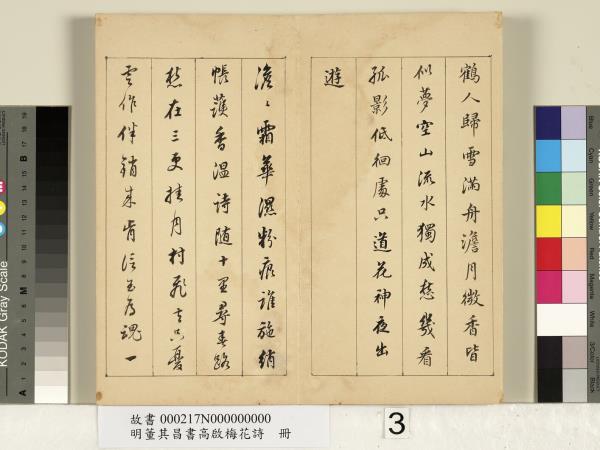 鶴人歸雪滿舟澹月微香皆
似夢空山流水獨成愁幾看
孤影低徊處只道花神夜出
遊
澹〻霜華濕粉痕誰施綃
帳護香溫詩隨十里尋春路
愁在三更挂月村飛去只憂
雲作伴銷來肯信玉為魂一
故書 000217N000000000
明董其昌書高啟梅花詩 冊
3
KODAK Gray Scale
A
M
B
Blue
Cyan
Green
Yellow
Red
Magenta
White
3/Color
Black